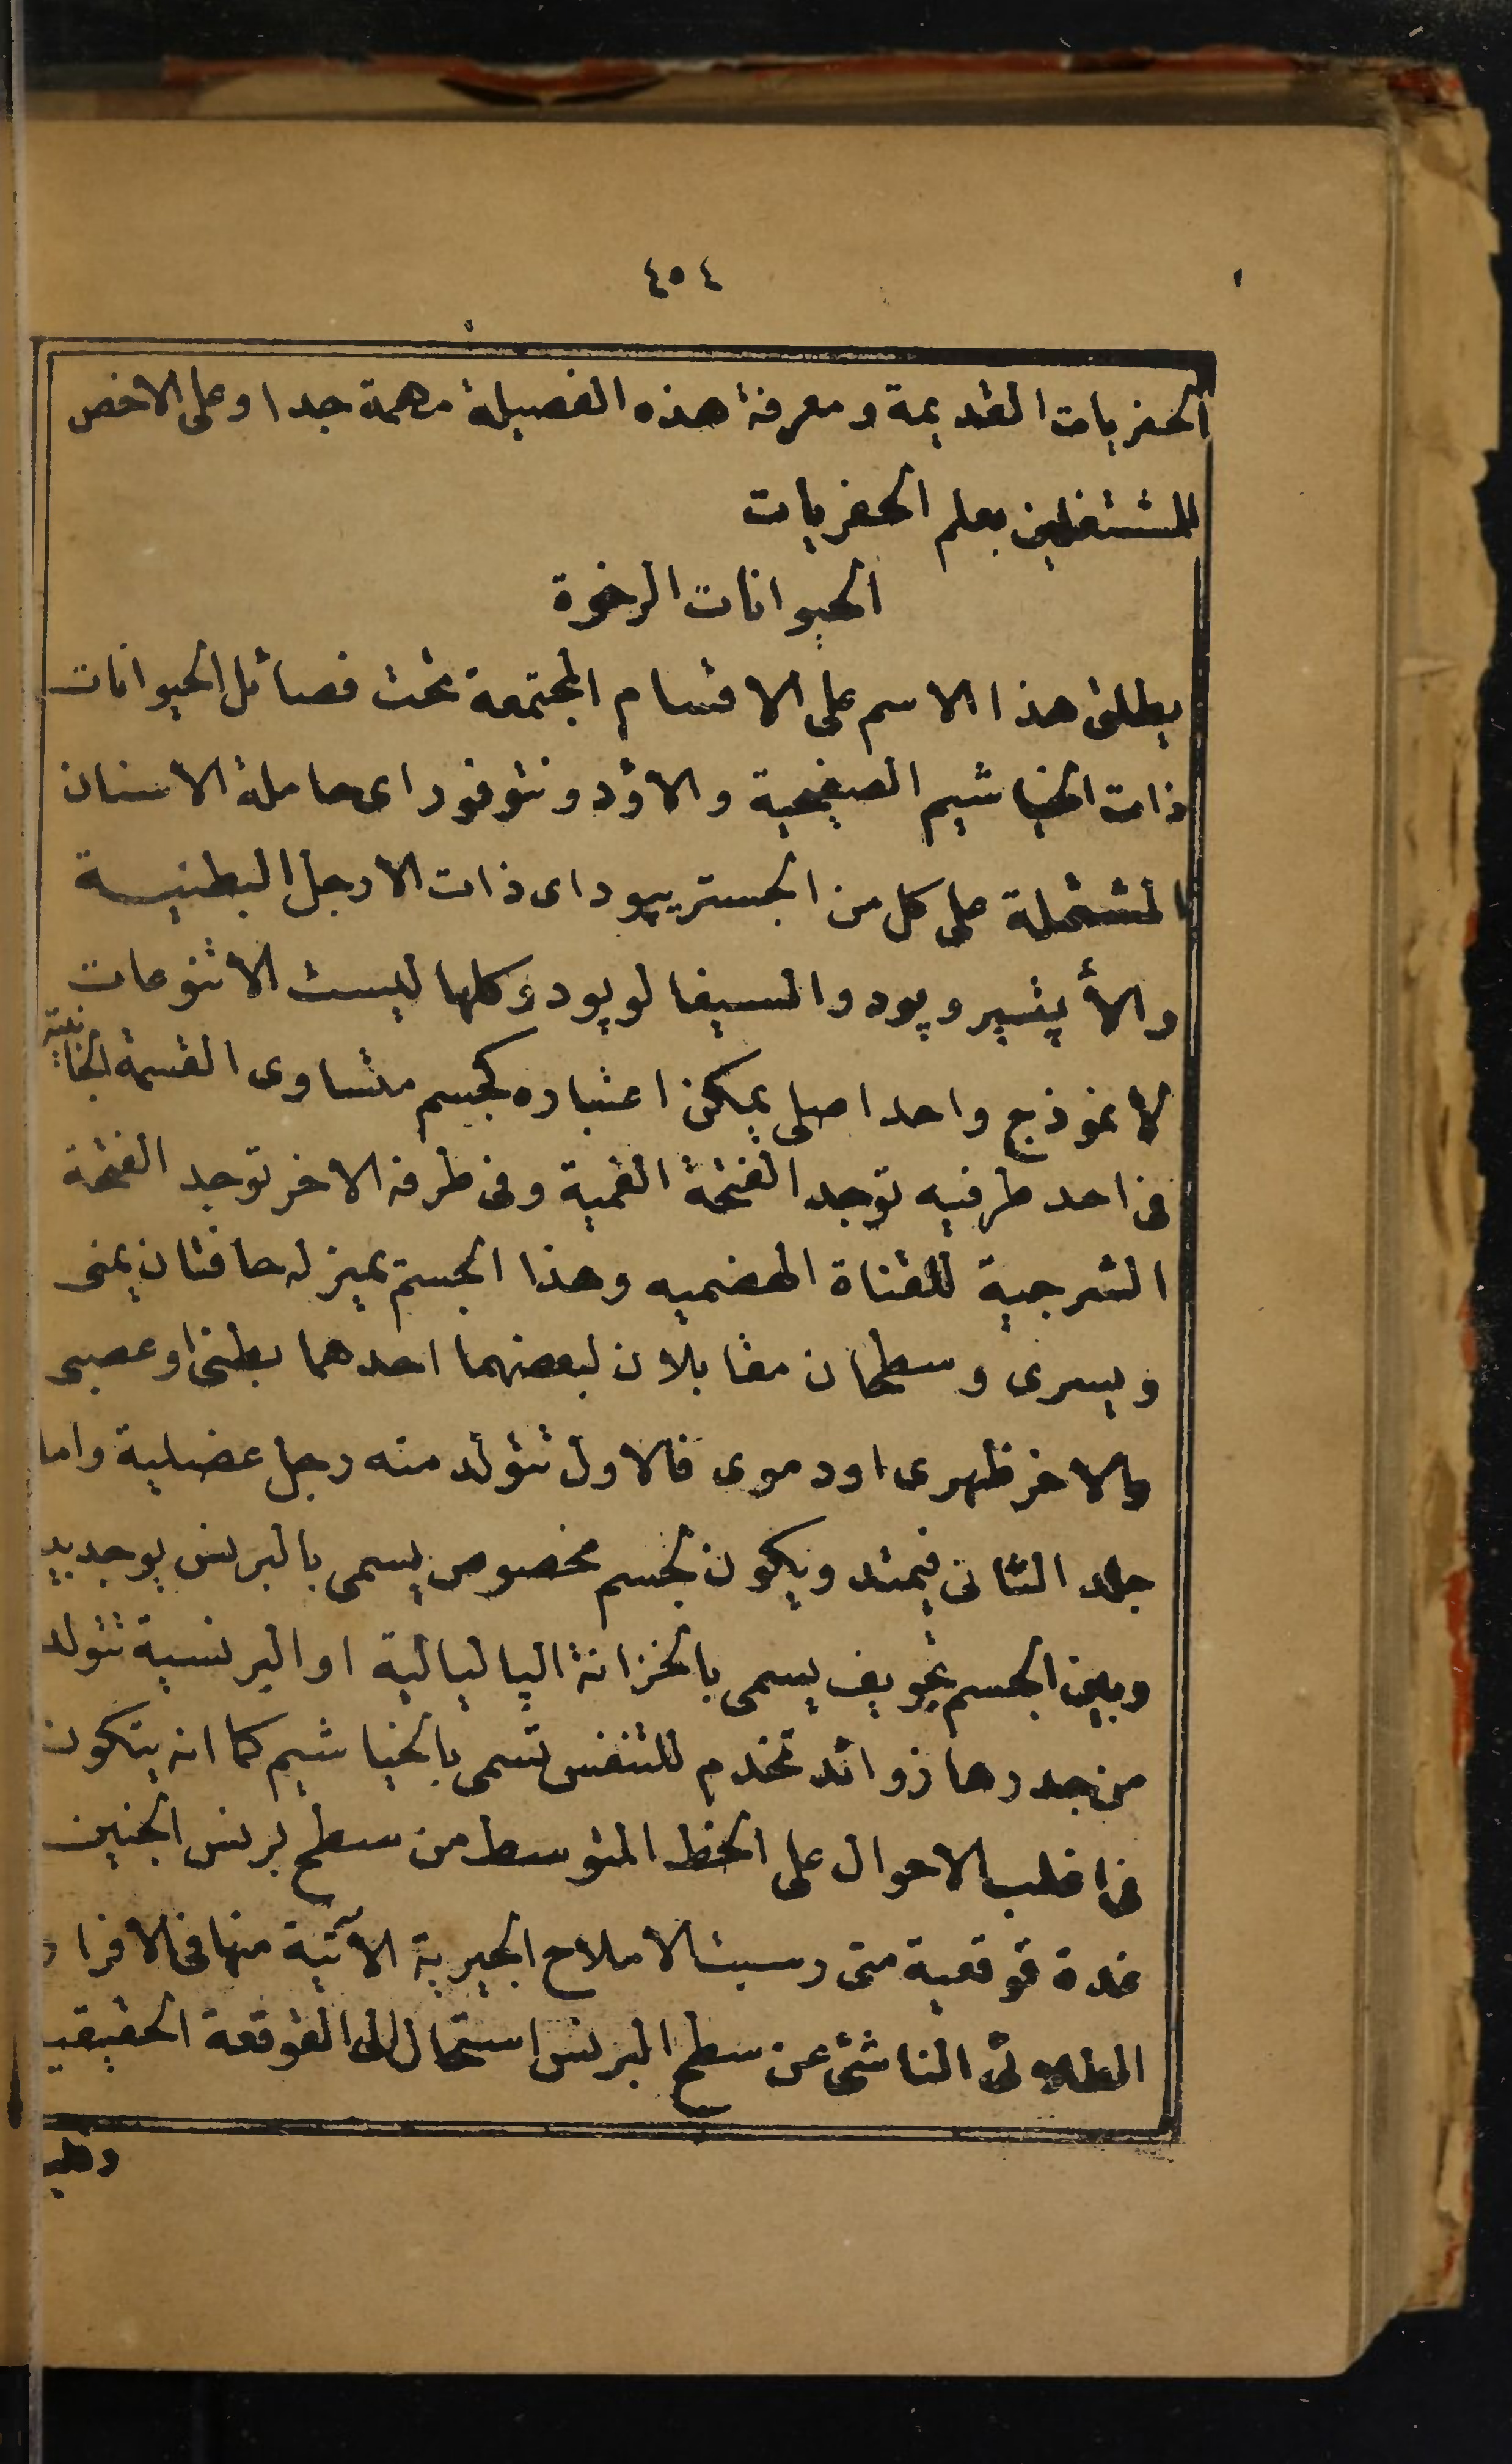 ٤٥٤
الحفريات القديمة ومعرفة هذه الفصيلة مهمة جدا وعلى الاخص
للمشتغلين بعلم الحفريات
الحيوانات الرخوة
يطلق هذا الاسم على الاقسام المجتمعة تحت فصائل الحيوانات
ذات الخياشيم الصفيحية والاودونتوفور اى حاملة الاسنان
المشتملة على كل من الجستريپود اى ذات الارجل البطنية
والأپتيروپود والسيفالوپود وكلها ليست الا تنوعات
لأنموذج واحد اصلى يمكن اعتباره كجسم متساوى القسمة الجانبية
فى احد طرفيه توجد الفتحة الفمية وفى طرفه الاخر توجد الفتحة
الشرجية للقناة الهضميه وهذا الجسم يميز له حافتان يمنى
ويسرى وسطحان مقابلان لبعضهما احدهما بطنى او عصبى
والاخر ظهرى او دموى فالاول تتولد منه رجل عضلية واما
جلد الثانى فيمتد ويكون لجسم مخصوص يسمى بالبرنس يوجد بيد
وبين الجسم تجويف يسمى بالخزانة الپاليالية او البرنسية تتولد
من جدرها زوائد تخدم للتنفس تسمى بالخياشيم كما انه يتكون
فى اغلب الاحوال على الخط المتوسط من سطح برنس الجنين
غدة قوقعية متى رسبت الاملاح الجيرية الآتية منها فى الافراز
الطلائى الناشئ عن سطح البرنس استحال الى القوقعة الحقيقية